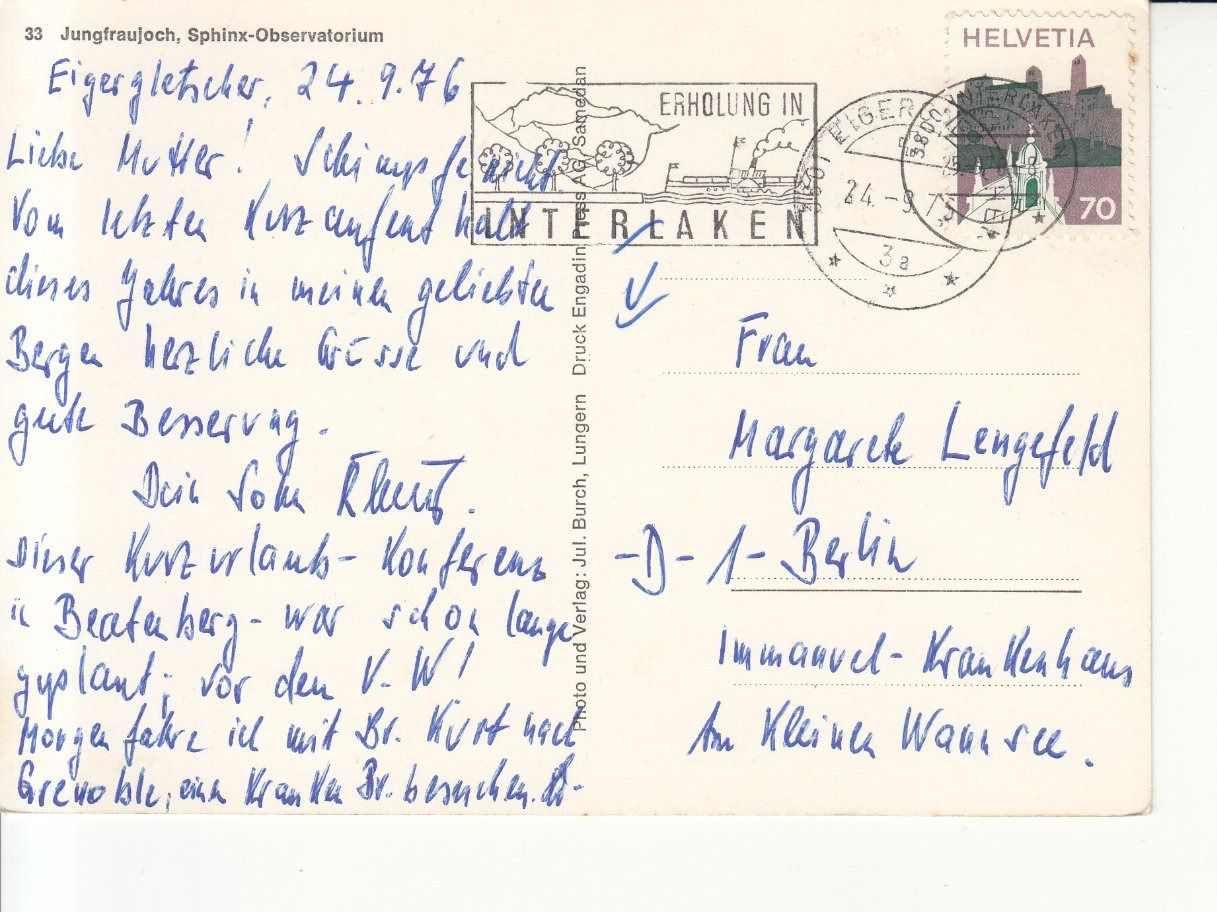 33 Jungfraujoch, Sphinx-Observatorium
Eigergletscher, 24.9.76
Liebe Mutter! Schimpfe nicht.
Vom letzten Kurzaufent halt
dieses Jahres in meinen geliebten
Bergen herzliche Grüsse und
gute Besserung.
Dein Sohn
Dieser Kurzurlaub - Konferenz
in Beatenberg - war schon lange
geplant; vor den V. W!
Morgen fahre ich mit Br. Kurt nach
Grenoble, einen Kranken Br. besuchen.
Photo und Verlag: Jul. Burch, Lungern Druck Engadin Press AG, Samedan
ERHOLUNG IN
INTERLAKEN
EIGER
24.-9.7
3a
3800 INTERLAKEN
HELVETIA
70
Frau
Margarete Lengefeld
-D-1-Berlin
Immanuel-Krankenhaus
Am Kleinen Wannsee.